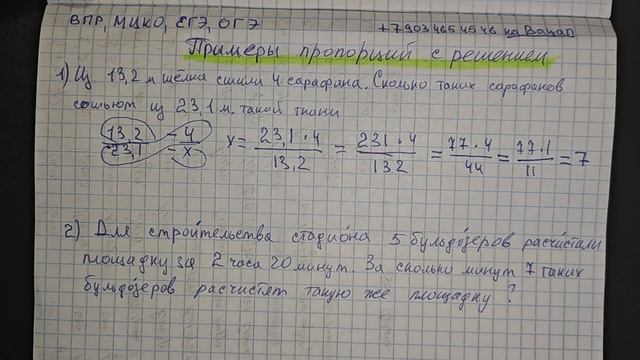 ВПР, МЦКО, ЕГЭ, ОГЭ
+7 903 465 45 46 на Вацап
Примеры пропорций с решением
1) Из 13,2 м шёлка сшили 4 сарафана. Сколько таких сарафанов
сошьют из 23,1 м. такой ткани
13,2 – 4
23,1 – x
x = 23,1 · 4 / 13,2 = 231 · 4 / 132 = 77 · 4 / 44 = 77 · 1 / 11 = 7
2) Для строительства стадиона 5 бульдозеров расчистали
площадку за 2 часа 20 минут. За сколько минут 7 таких
бульдозеров расчистят такую же площадку?